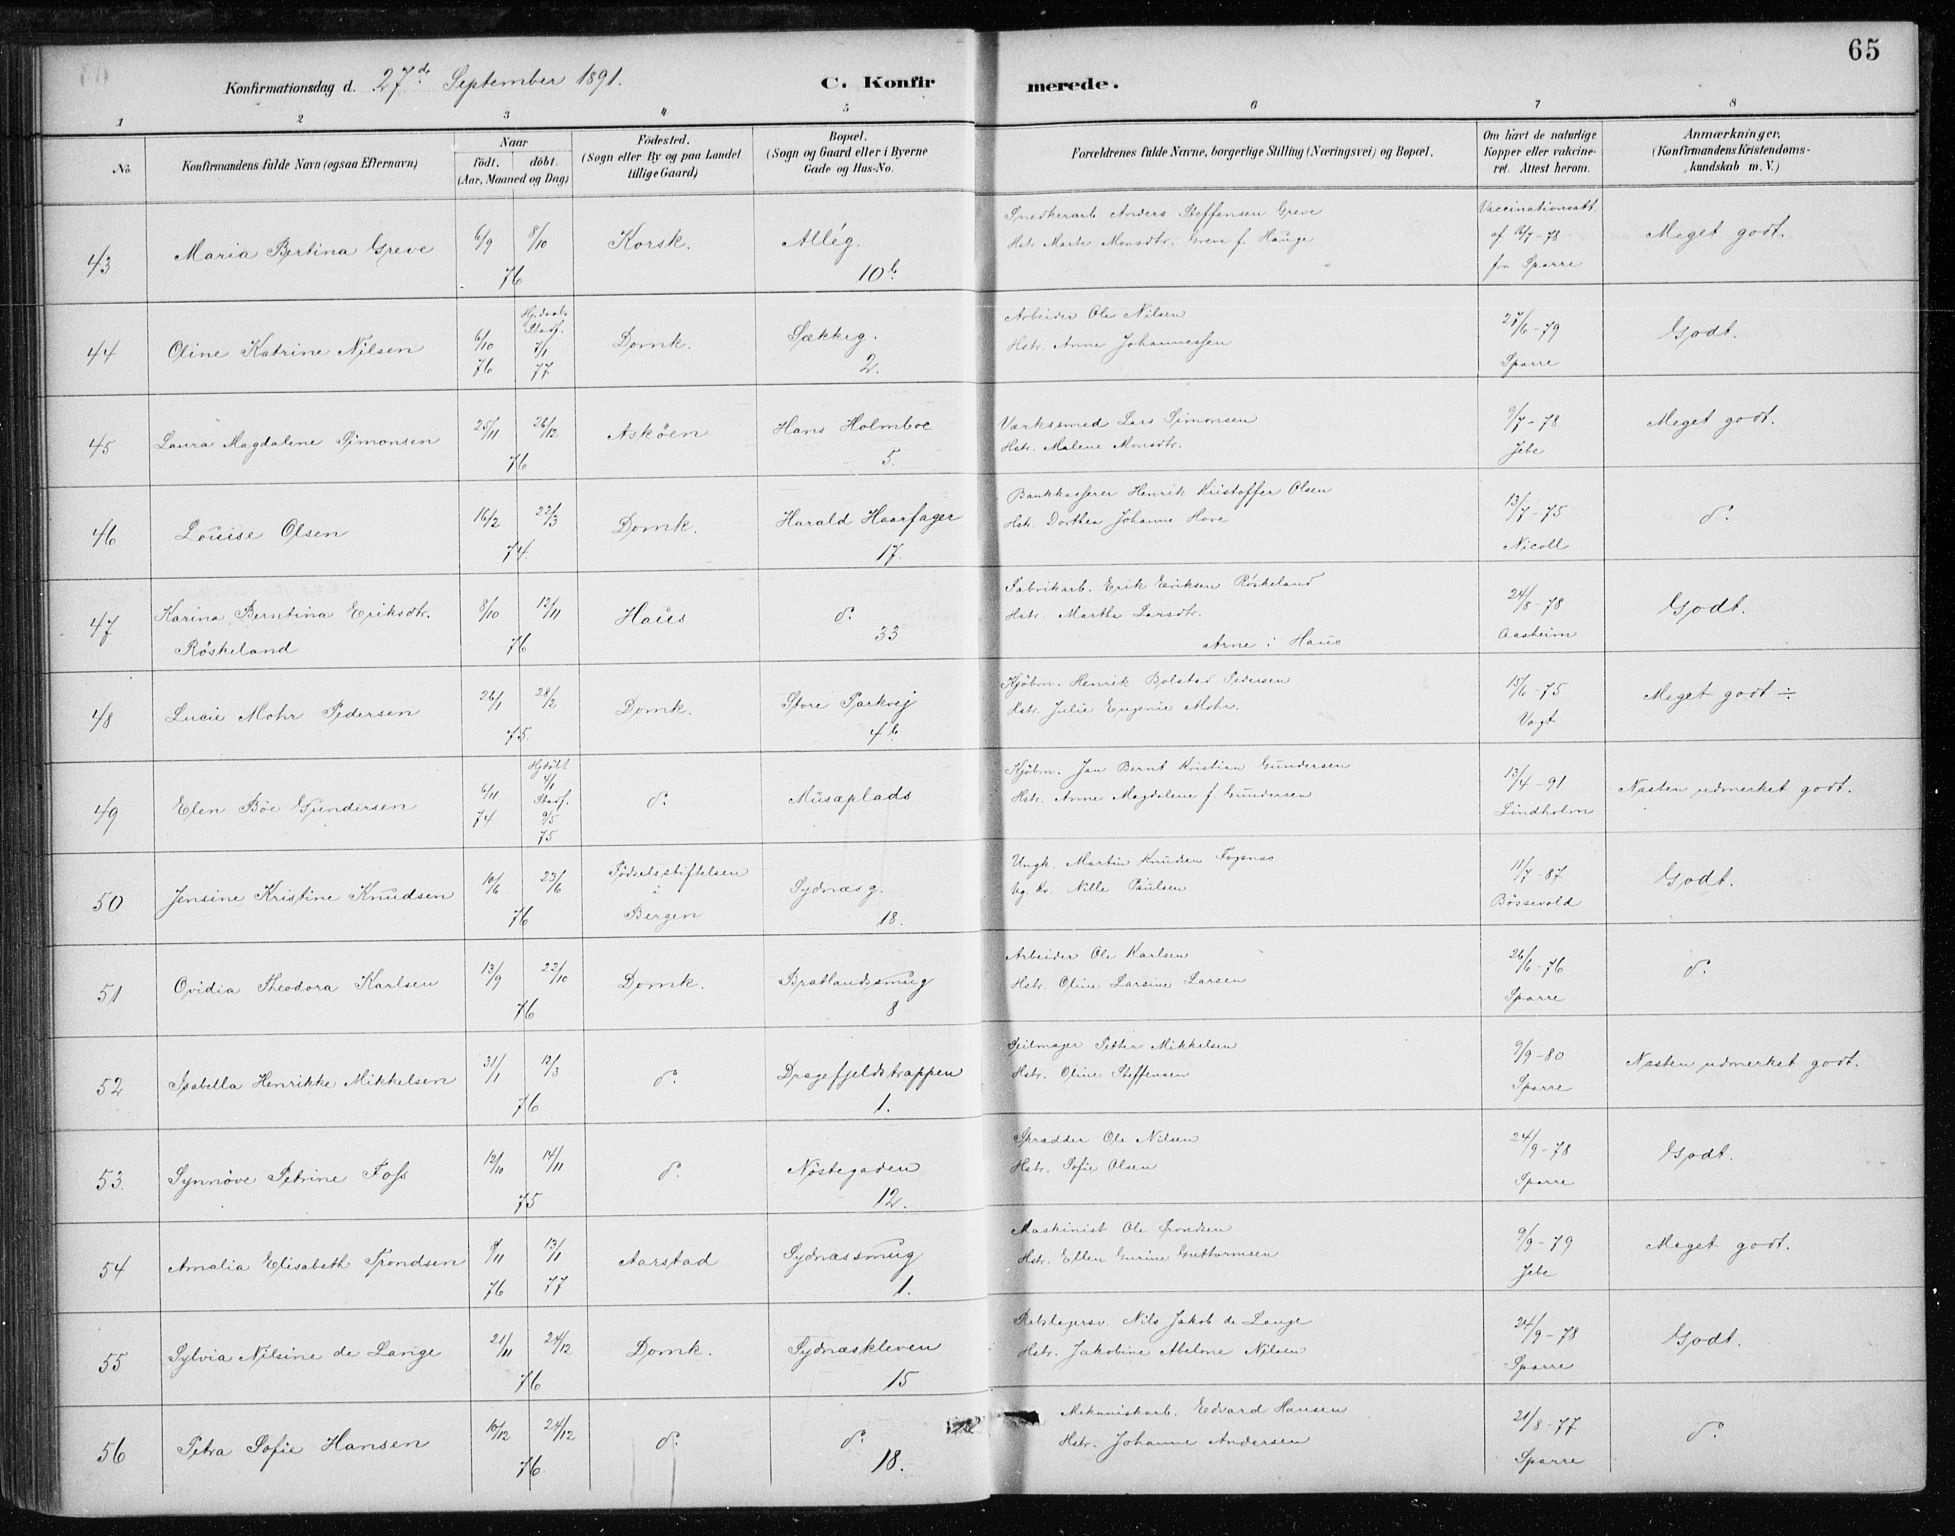 65
Konfirmationsdag d. 27de September 1891. C. Konfirmerede.
1 2 3 4 5 6 7 8
No. Konfirmandens fulde Navn (ogsaa Efternavn) Naar født. døbt. (Aar, Maaned og Dag) Fødested. (Sogn eller By og paa Landet tillige Gaard) Bopæl. (Sogn og Gaard eller i Byerne Gade og Hus-No. Forældrenes fulde Navne, borgerlige Stilling (Næringsvei) og Bopæl. Om havt de naturlige Kopper eller vakcineret. Attest herom. Anmærkninger. (Konfirmandens Kristendomskundskab m. V.)
43 Maria Bertina Greve 6/9 8/10 76 Korsk. Allég. 10b Snedkerarb Anders Steffensen Greve
Hstr Marte Monsdtr. Greve f. Hauge Vaccinationsatt. af 16/7-78 fra Sparre Meget godt.
44 Oline Katrine Nilsen 6/10 76 Stadf. 7/1 77 Domk. Sækkeg. 2. Arbeider Ole Nilsen
Hstr. Anne Johannessen 27/6-79 Sparre Godt.
45 Laura Magdalene Simonsen 25/11 26/12 76 Askøen Hans Holmboe 5. Værkssmed Lars Simonsen
Hstr. Malene Monsdtr. 9/7-78 Jebe Meget godt.
46 Louise Olsen 16/2 22/3 74. Domk. Harald Haarfager 17. Bankkasserer Henrik Kristoffer Olsen
Hstr. Dorthea Johanne Hove 13/7-75 Nicoll do.
47 Karina Berntina Eriksdtr. Røskeland 8/10 12/11 76 Haus do. 33 Fabrikarb. Erik Eriksen Røskeland
Hstr. Martha Larsdtr.
Arne i Haus 24/8-78 Aasheim Godt.
48 Lucie Mohr Pedersen 26/1 28/2 75. Domk. Store Parkvej 4b. Kjøbm. Henrik Bolstad Pedersen
Hstr. Julie Eugenie Mohr. 15/6-75 Vogt Meget godt ÷
49 Elen Böe Gundersen 6/11 74 Hjdöbt 4/1 Stadf. 9/5 75 do. Musæplads Kjøbm. Jan Bernt Kristian Gundersen
Hstr. Anne Magdalene f. Gundersen 13/4-91 Lindholm Næsten udmerket godt.
50 Jensine Kristine Knudsen 10/6 23/6 76 Fødselsstiftelsen i Bergen Sydnæsg. 18. Ungk. Martin Knudsen Fosnas
Ug. Kv. Nille Paulsen 11/7-87 Bössevold Godt.
51 Ovidia Theodora Karlsen 13/9 22/10 76 Domk. Bratlandssmug 8 Arbeider Ole Karlsen
Hstr. Oline Larsine Larsen 26/6-76 Sparre do.
52 Isabella Henrikke Mikkelsen 31/1 12/3 76 do. Dragefjeldstrappen 1. Seilmager Petter Mikkelsen
Hstr. Oline Steffensen 9/9-80 Sparre Næsten udmerket godt.
53. Synnöve Petrine Foss 12/10 14/11 75 do. Nøstegaden 12. Spradder Ole Nilsen
Hstr. Sofie Olsen 24/9-78 Sparre Godt.
54 Amalia Elisabeth Trondsen 9/11 76 13/1 77 Aarstad Sydnæssmug 1. Maskinist Ole Trondsen
Hstr. Ellen Gurine Guttormsen 9/9-79 Jebe Meget godt.
55 Sylvia Nilsine de Lange 21/11 24/12 76 Domk. Sydnæskleven 15 Nils Jakob de Lange
Hstr. Jakobine Abelone Nilsen 24/9-78 Sparre Godt.
56 Petra Sofie Hansen 10/12 24/12 76 do. do. 18. Mekaniskarb. Edvard Hansen
Hstr. Johanne Andersen 21/8-77 Sparre do.